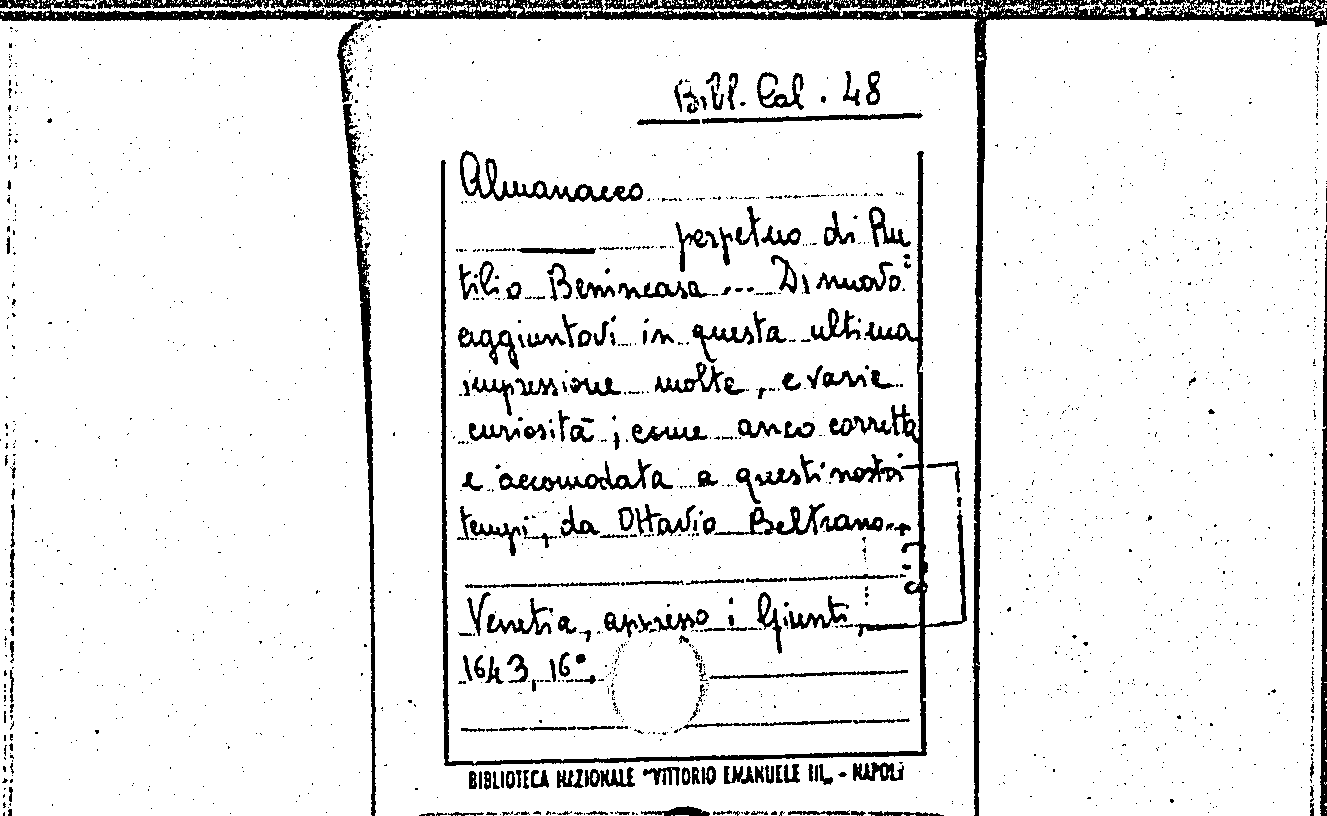 Bibl. Cal. 48
Almanacco
perpetuo di Ru
tilio Benincasa ... Di nuovo
aggiuntovi in questa ultima
impressione molte, e varie
curiosità; come anco corretta
e accomodata a questi nostri
tempi, da Ottavio Beltrano...
Venetia, appresso i Giunti,
1643, 16°.
BIBLIOTECA NAZIONALE "VITTORIO EMANUELE III„ - NAPOLI